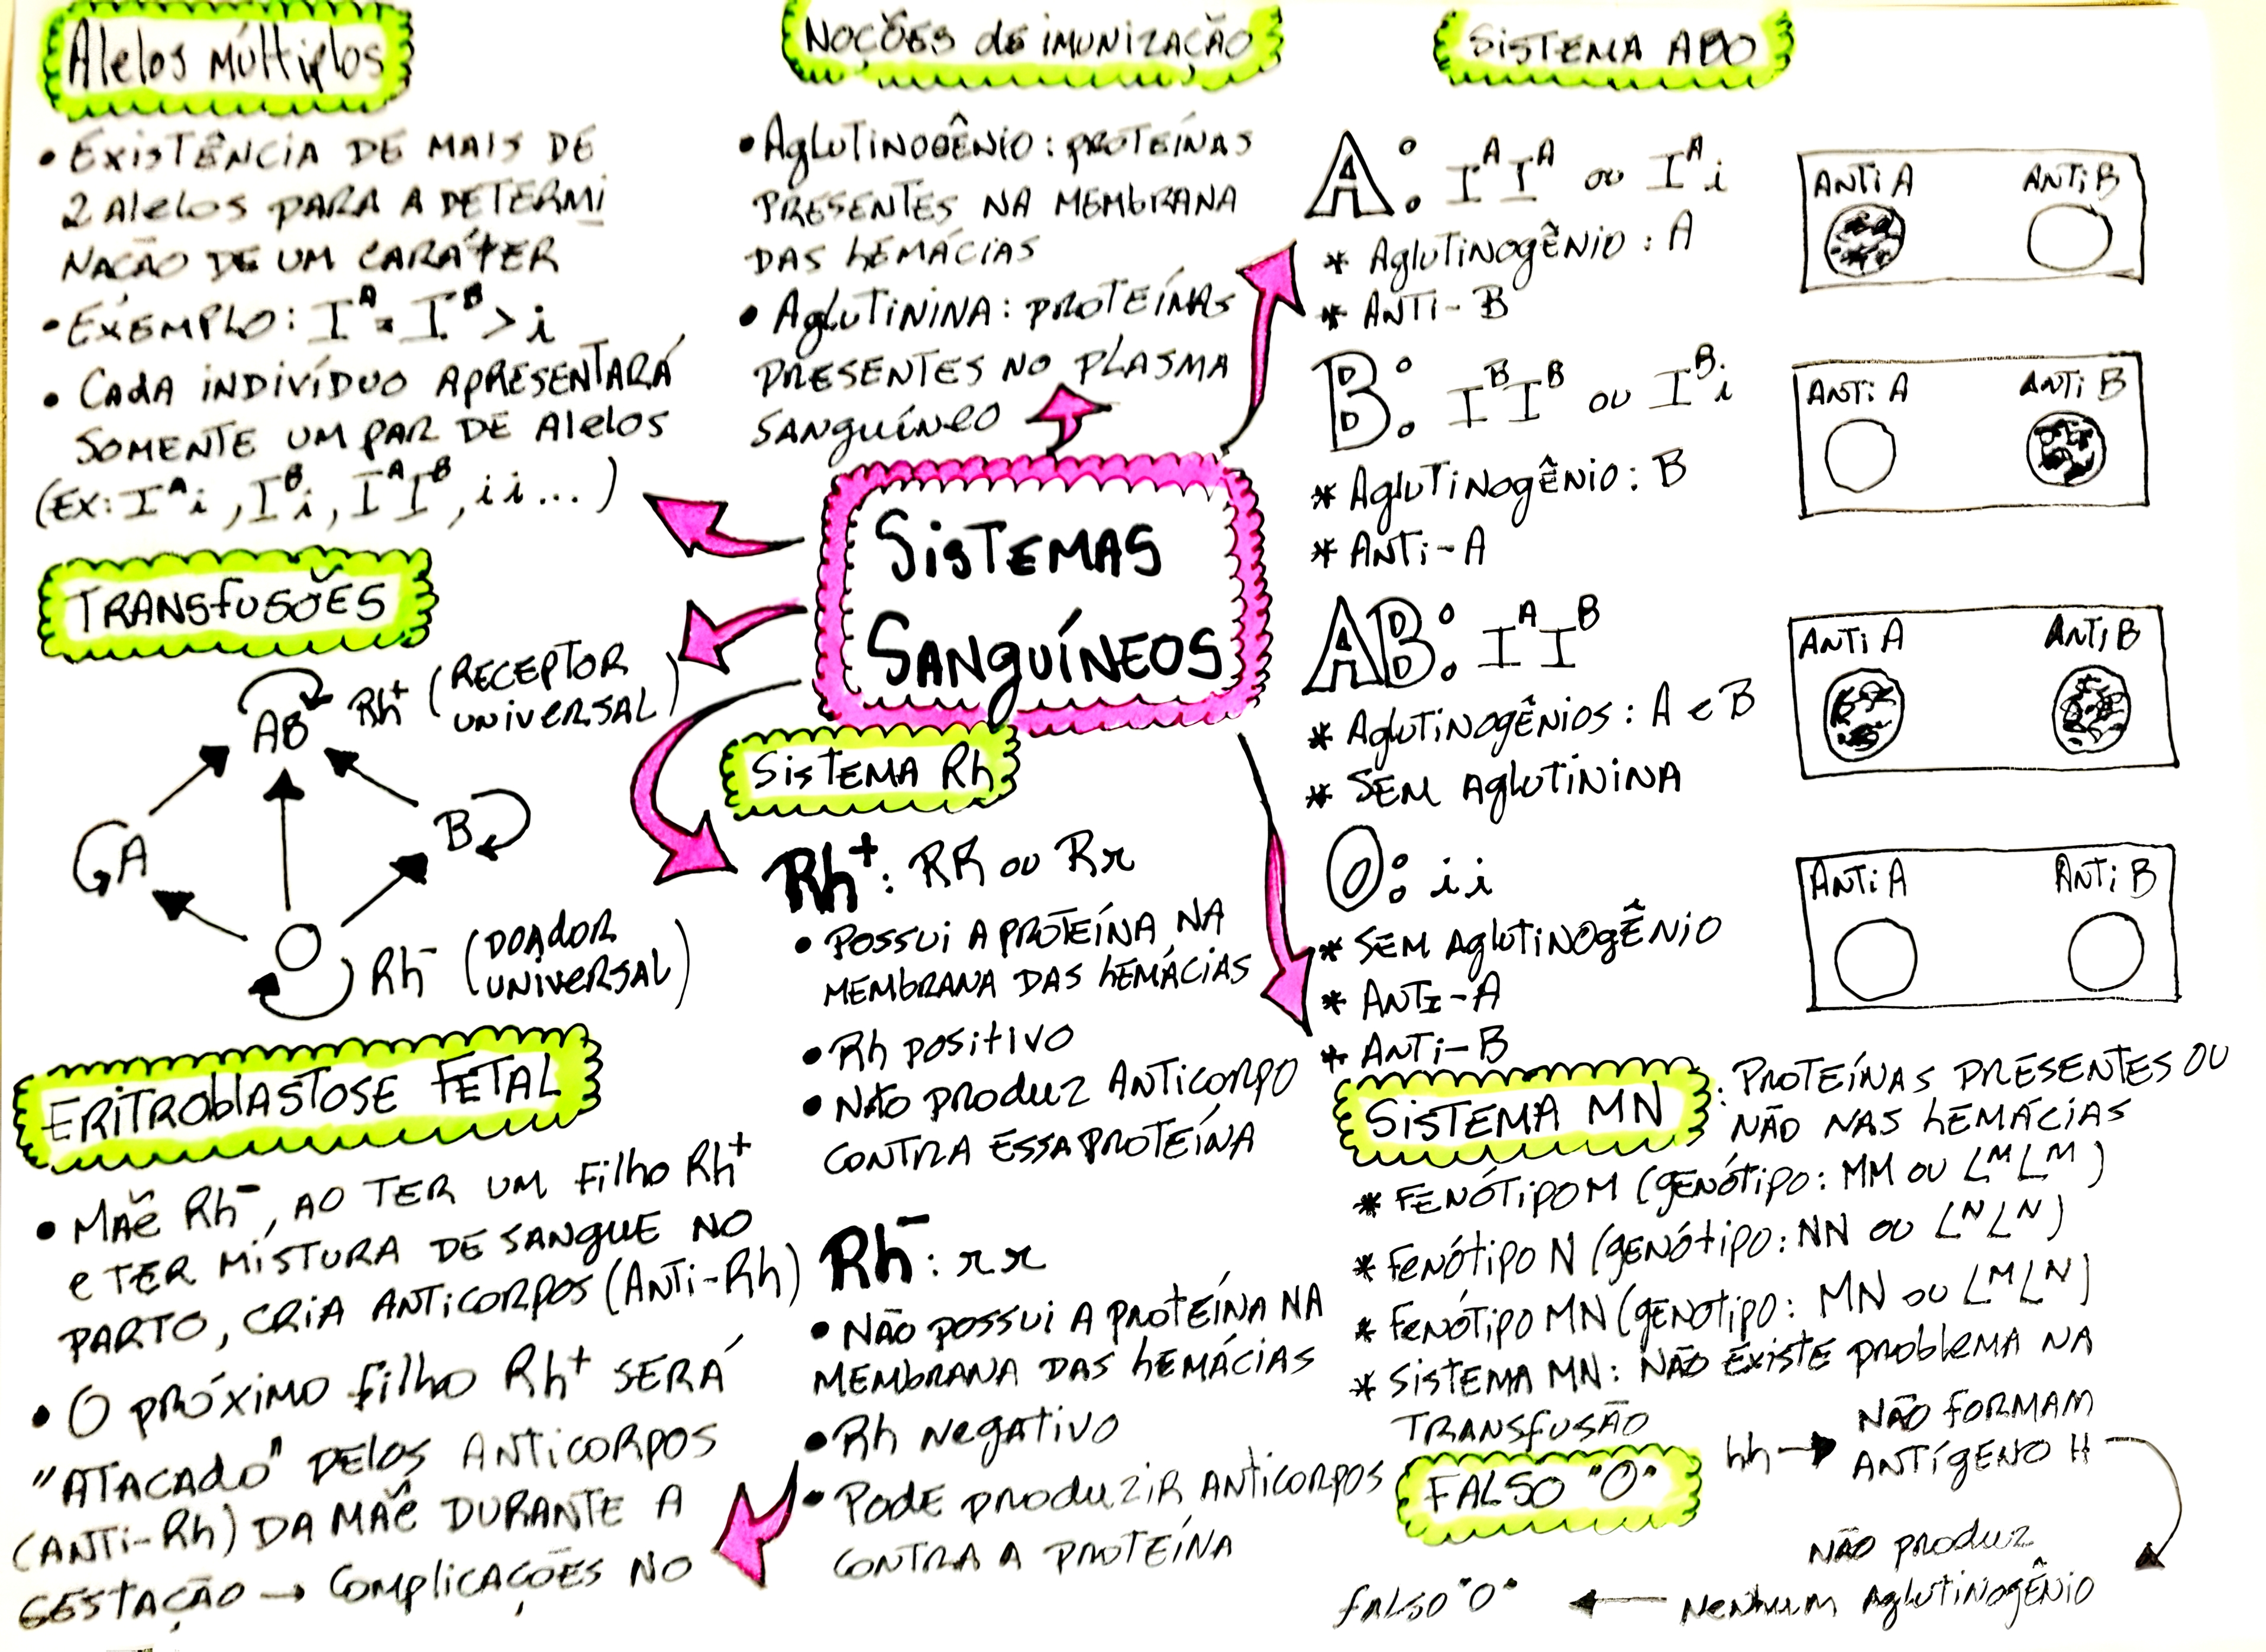 Alelos múltiplos
• Existência de mais de
2 alelos para a determi
nação de um caráter
• Exemplo: Iᴬ = Iᴮ > i
• Cada indivíduo apresentará
somente um par de alelos
(Ex: Iᴬi, Iᴮi, IᴬIᴮ, ii...)
Transfusões
AB Rh⁺ (receptor
universal)
A
B
O Rh⁻ (doador
universal)
Eritroblastose Fetal
• Mãe Rh⁻, ao ter um filho Rh⁺
e ter mistura de sangue no
parto, cria anticorpos (Anti-Rh)
• O próximo filho Rh⁺ será
"atacado" pelos anticorpos
(Anti-Rh) da mãe durante a
gestação → Complicações no
Noções de imunização
• Aglutinogênio: proteínas
presentes na membrana
das hemácias
• Aglutinina: proteínas
presentes no plasma
sanguíneo
Sistemas
Sanguíneos
Sistema Rh
Rh⁺: RR ou Rr
• Possui a proteína na
membrana das hemácias
• Rh positivo
• Não produz anticorpo
contra essa proteína
Rh⁻: rr
• Não possui a proteína na
membrana das hemácias
• Rh negativo
• Pode produzir anticorpos
contra a proteína
Sistema ABO
A: IᴬIᴬ ou Iᴬi
* Aglutinogênio: A
* Anti-B
Anti A Anti B
B: IᴮIᴮ ou Iᴮi
* Aglutinogênio: B
* Anti-A
Anti A Anti B
AB: IᴬIᴮ
* Aglutinogênios: A e B
* Sem aglutinina
Anti A Anti B
O: ii
* Sem aglutinogênio
* Anti-A
* Anti-B
Anti A Anti B
Sistema MN : Proteínas presentes ou
não nas hemácias
* Fenótipo M (genótipo: MM ou LᴹLᴹ)
* Fenótipo N (genótipo: NN ou LᴺLᴺ)
* Fenótipo MN (genotipo: MN ou LᴹLᴺ)
* Sistema MN: Não existe problema na
transfusão
Falso "O"
hh → Não formam
antígeno H
Não produz
nenhum aglutinogênio
← falso "O"